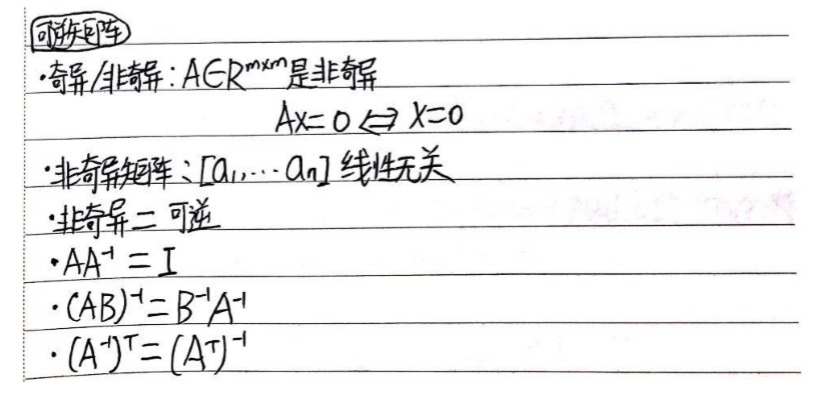 可逆矩阵
·奇异/非奇异:A∈R^{m×m}是非奇异
Ax=0⇔X=0
·非奇异矩阵:[a₁,…aₙ]线性无关
·非奇异=可逆
·AA⁻¹=I
·(AB)⁻¹=B⁻¹A⁻¹
·(A⁻¹)ᵀ=(Aᵀ)⁻¹